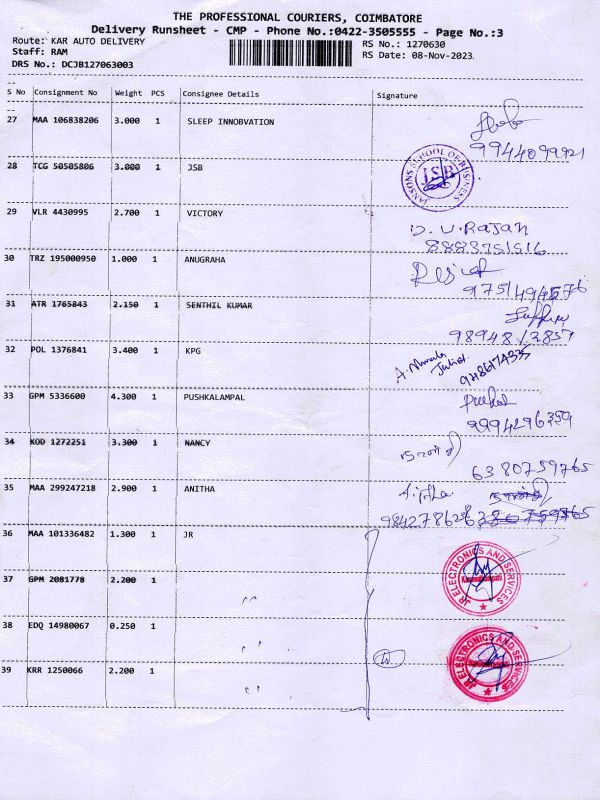 THE PROFESSIONAL COURIERS, COIMBATORE
Delivery Runsheet - CMP - Phone No.:0422-3505555 - Page No.:3
Route: KAR AUTO DELIVERY RS No.: 1270630
Staff: RAM RS Date: 08-Nov-2023
DRS No.: DCJB127063003
S No Consignment No Weight PCS Consignee Details Signature
27 MAA 106838206 3.000 1 SLEEP INNOBVATION
9944099921
28 TCG 50505806 3.000 1 JSB
JANSONS SCHOOL OF BUSINESS
JSB
29 VLR 4430995 2.700 1 VICTORY
D. V. RAJAN
8883751516
30 TRZ 195000950 1.000 1 ANUGRAHA
31 ATR 1765843 2.150 1 SENTHIL KUMAR
32 POL 1376841 3.400 1 KPG
33 GPM 5336600 4.300 1 PUSHKALAMPAL
9994296359
34 KOD 1272251 3.300 1 NANCY
6380759765
35 MAA 299247218 2.900 1 ANITHA
36 MAA 101336482 1.300 1 JR
JR ELECTRONICS AND SERVICES
37 GPM 2081778 2.200 1 "
38 EDQ 14980067 0.250 1 "
JR ELECTRONICS AND SERVICES
39 KRR 1250066 2.200 1 "